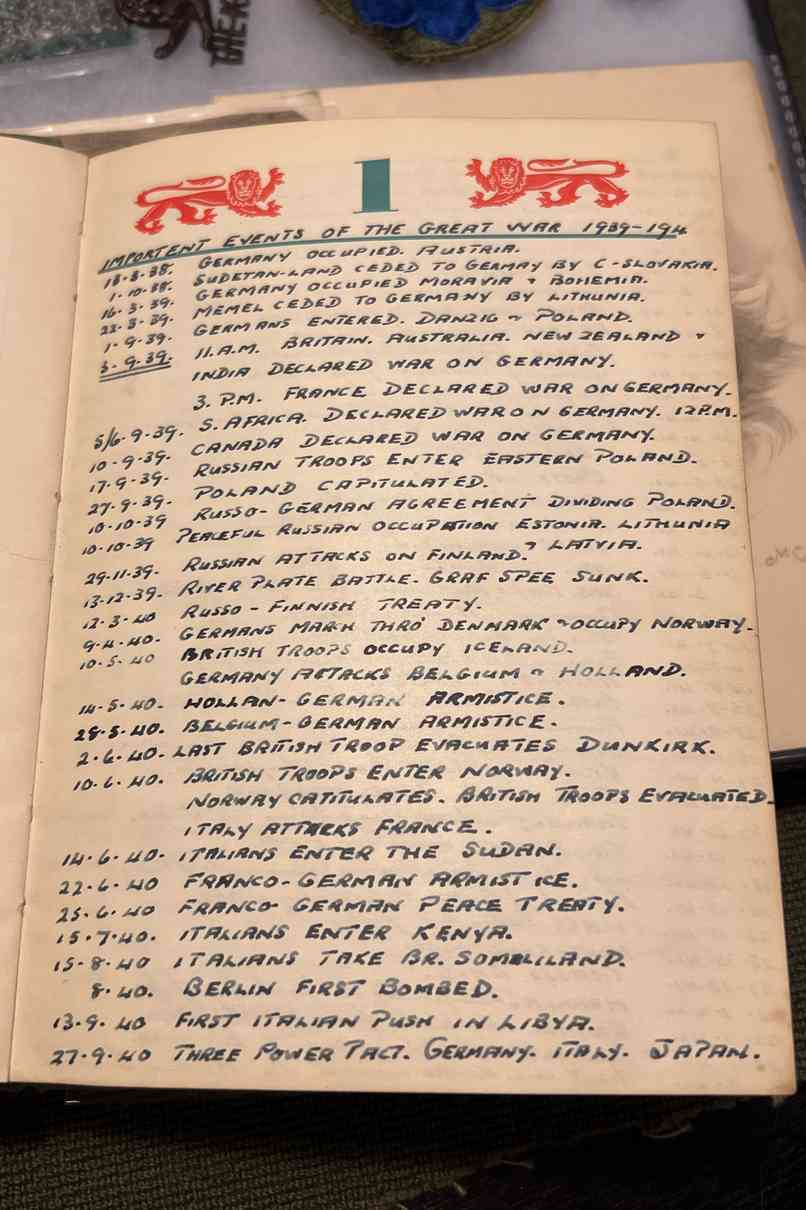 THE K
1
IMPORTENT EVENTS OF THE GREAT WAR 1939-194
13.3.38. GERMANY OCCUPIED. AUSTRIA.
1.10.38. SUDETAN-LAND CEDED TO GERMAY BY C-SLOVAKIA.
16.3.39. GERMANY OCCUPIED MORAVIA & BOHEMIA.
22.3.39. MEMEL CEDED TO GERMANY BY LITHUNIA.
1.9.39. GERMANS ENTERED. DANZIG & POLAND.
3.9.39. 11.A.M. BRITAIN. AUSTRALIA. NEW ZEALAND &
INDIA DECLARED WAR ON GERMANY.
3. P.M. FRANCE DECLARED WAR ON GERMANY.
5/6.9.39. S. AFRICA. DECLARED WAR ON GERMANY. 12P.M.
10.9.39. CANADA DECLARED WAR ON GERMANY.
17.9.39. RUSSIAN TROOPS ENTER EASTERN POLAND.
27.9.39. POLAND CAPITULATED.
10.10.39 RUSSO-GERMAN AGREEMENT DIVIDING POLAND.
10.10.39 PEACEFUL RUSSIAN OCCUPATION ESTONIA. LITHUNIA
& LATVIA.
29.11.39. RUSSIAN ATTACKS ON FINLAND.
13.12.39. RIVER PLATE BATTLE. GRAF SPEE SUNK.
12.3.40 RUSSO-FINNISH TREATY.
9.4.40. GERMANS MARCH THRO' DENMARK & OCCUPY NORWAY.
10.5.40 BRITISH TROOPS OCCUPY ICELAND.
GERMANY ATTACKS BELGIUM & HOLLAND.
14.5.40. HOLLAN-GERMAN ARMISTICE.
28.5.40. BELGIUM-GERMAN ARMISTICE.
2.6.40. LAST BRITISH TROOP EVACUATES DUNKIRK.
10.6.40. BRITISH TROOPS ENTER NORWAY.
NORWAY CATITULATES. BRITISH TROOPS EVACUATED.
ITALY ATTACKS FRANCE.
14.6.40. ITALIANS ENTER THE SUDAN.
22.6.40 FRANCO-GERMAN ARMISTICE.
25.6.40 FRANCO-GERMAN PEACE TREATY.
15.7.40. ITALIANS ENTER KENYA.
15.8.40 ITALIANS TAKE BR. SOMALILAND.
8.40. BERLIN FIRST BOMBED.
13.9.40 FIRST ITALIAN PUSH IN LIBYA.
27.9.40 THREE POWER PACT. GERMANY. ITALY. JAPAN.